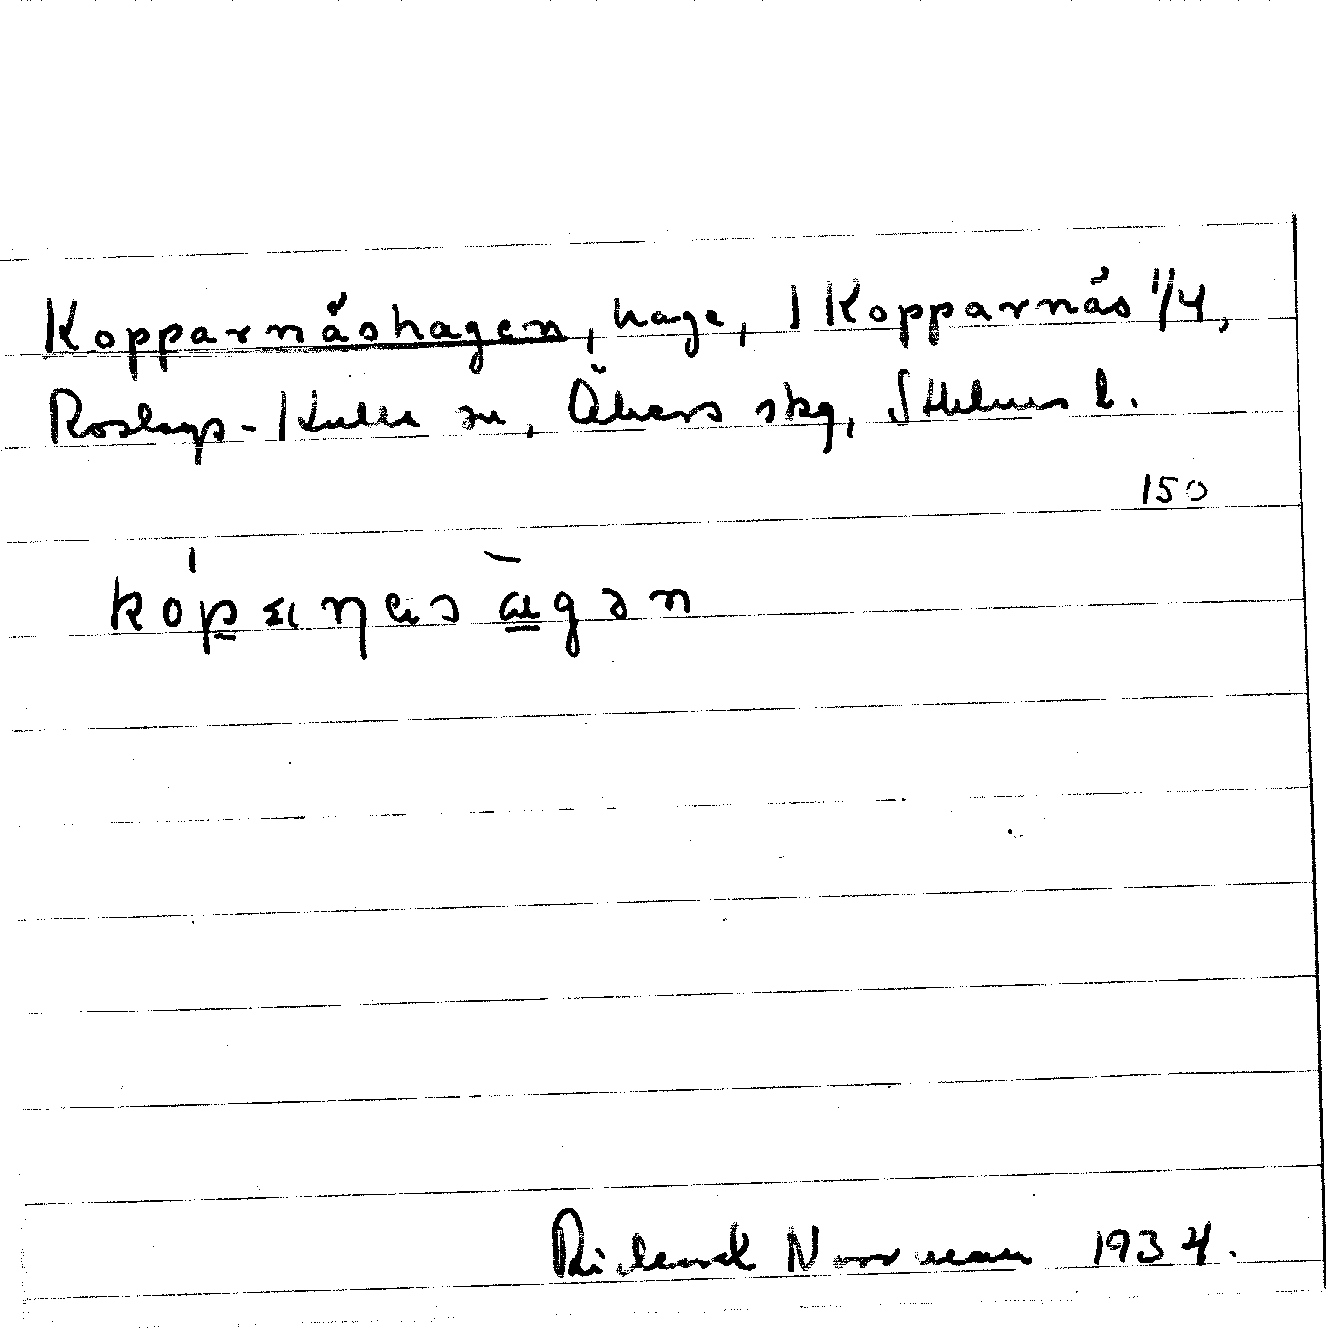 Kopparnäshagen, hage, 1 Kopparnäs 1/4,
Roslags-Kulla sn, Åkers skg, Sthlms l.
150
Richard Norrman 1934.